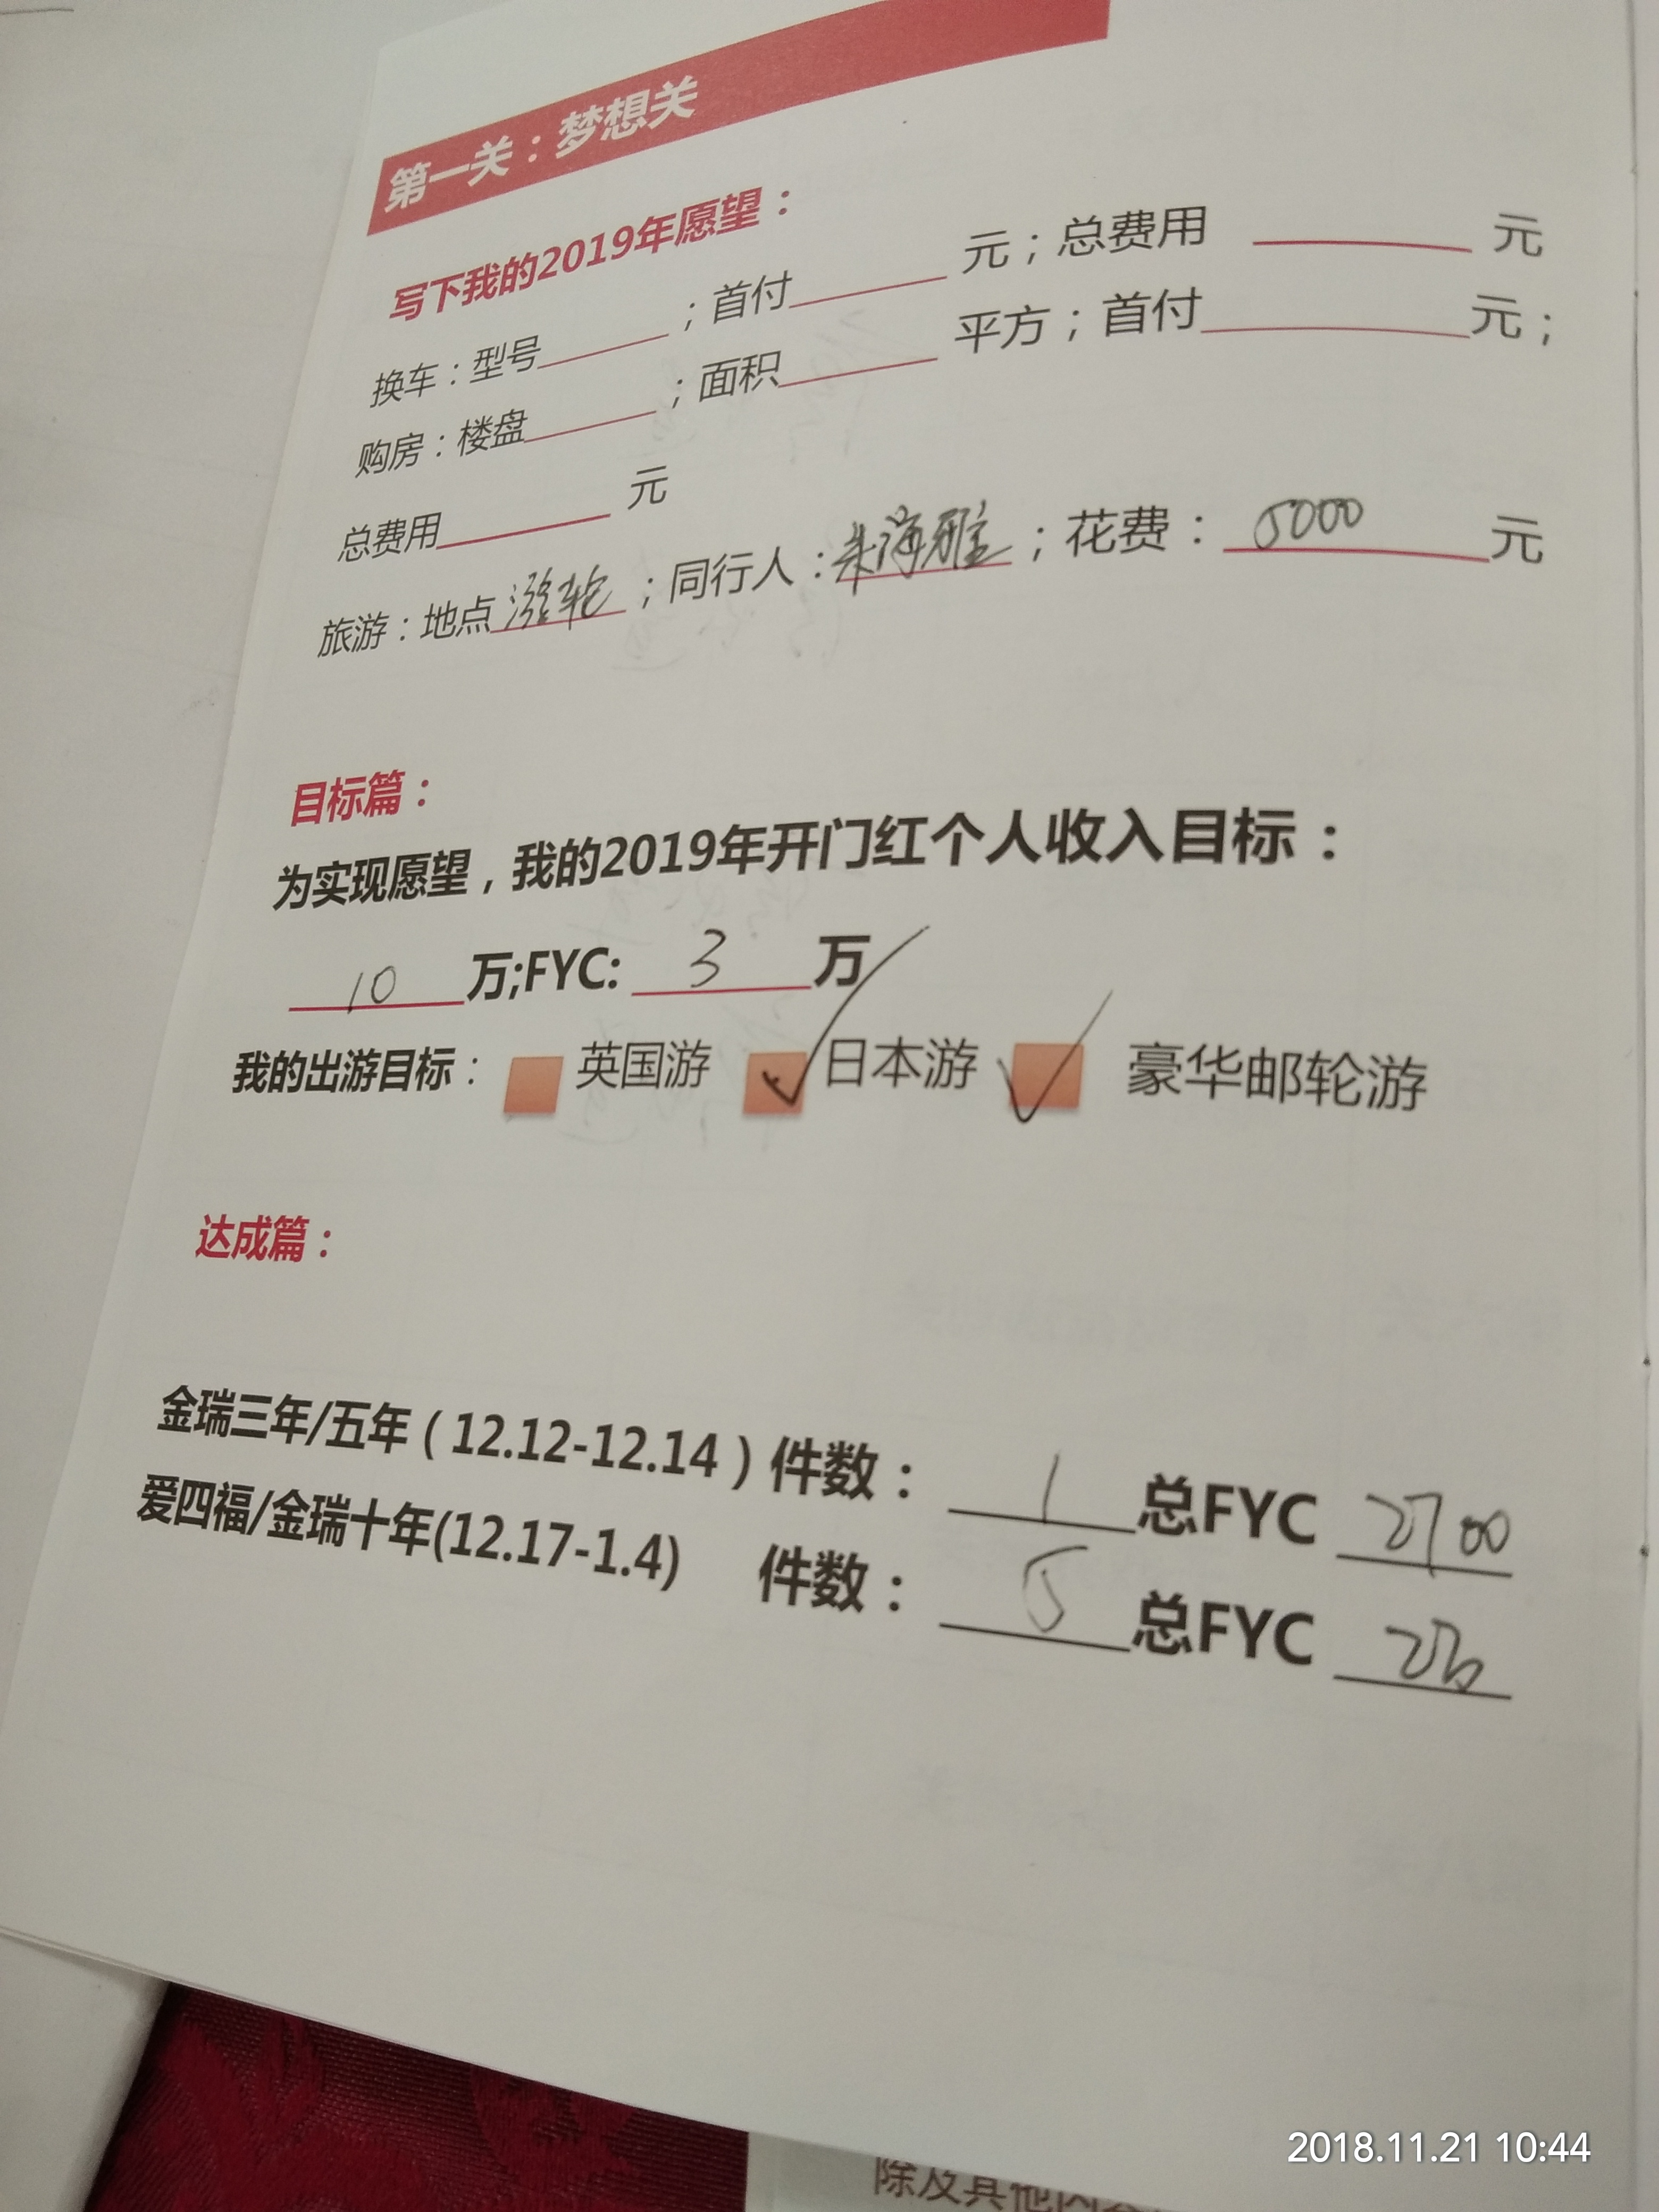 第一关：梦想关
写下我的2019年愿望：
换车：型号______；首付______元；总费用______元
购房：楼盘______；面积______平方；首付______元；
总费用______元
旅游：地点 ；同行人：朱海雅；花费：5000元
目标篇：
为实现愿望，我的2019年开门红个人收入目标：
10万;FYC: 3万
我的出游目标： 英国游 ✓日本游 ✓豪华邮轮游
达成篇：
金瑞三年/五年（12.12-12.14）件数： 1 总FYC 2700
爱四福/金瑞十年(12.17-1.4) 件数： 5 总FYC
2018.11.21 10:44